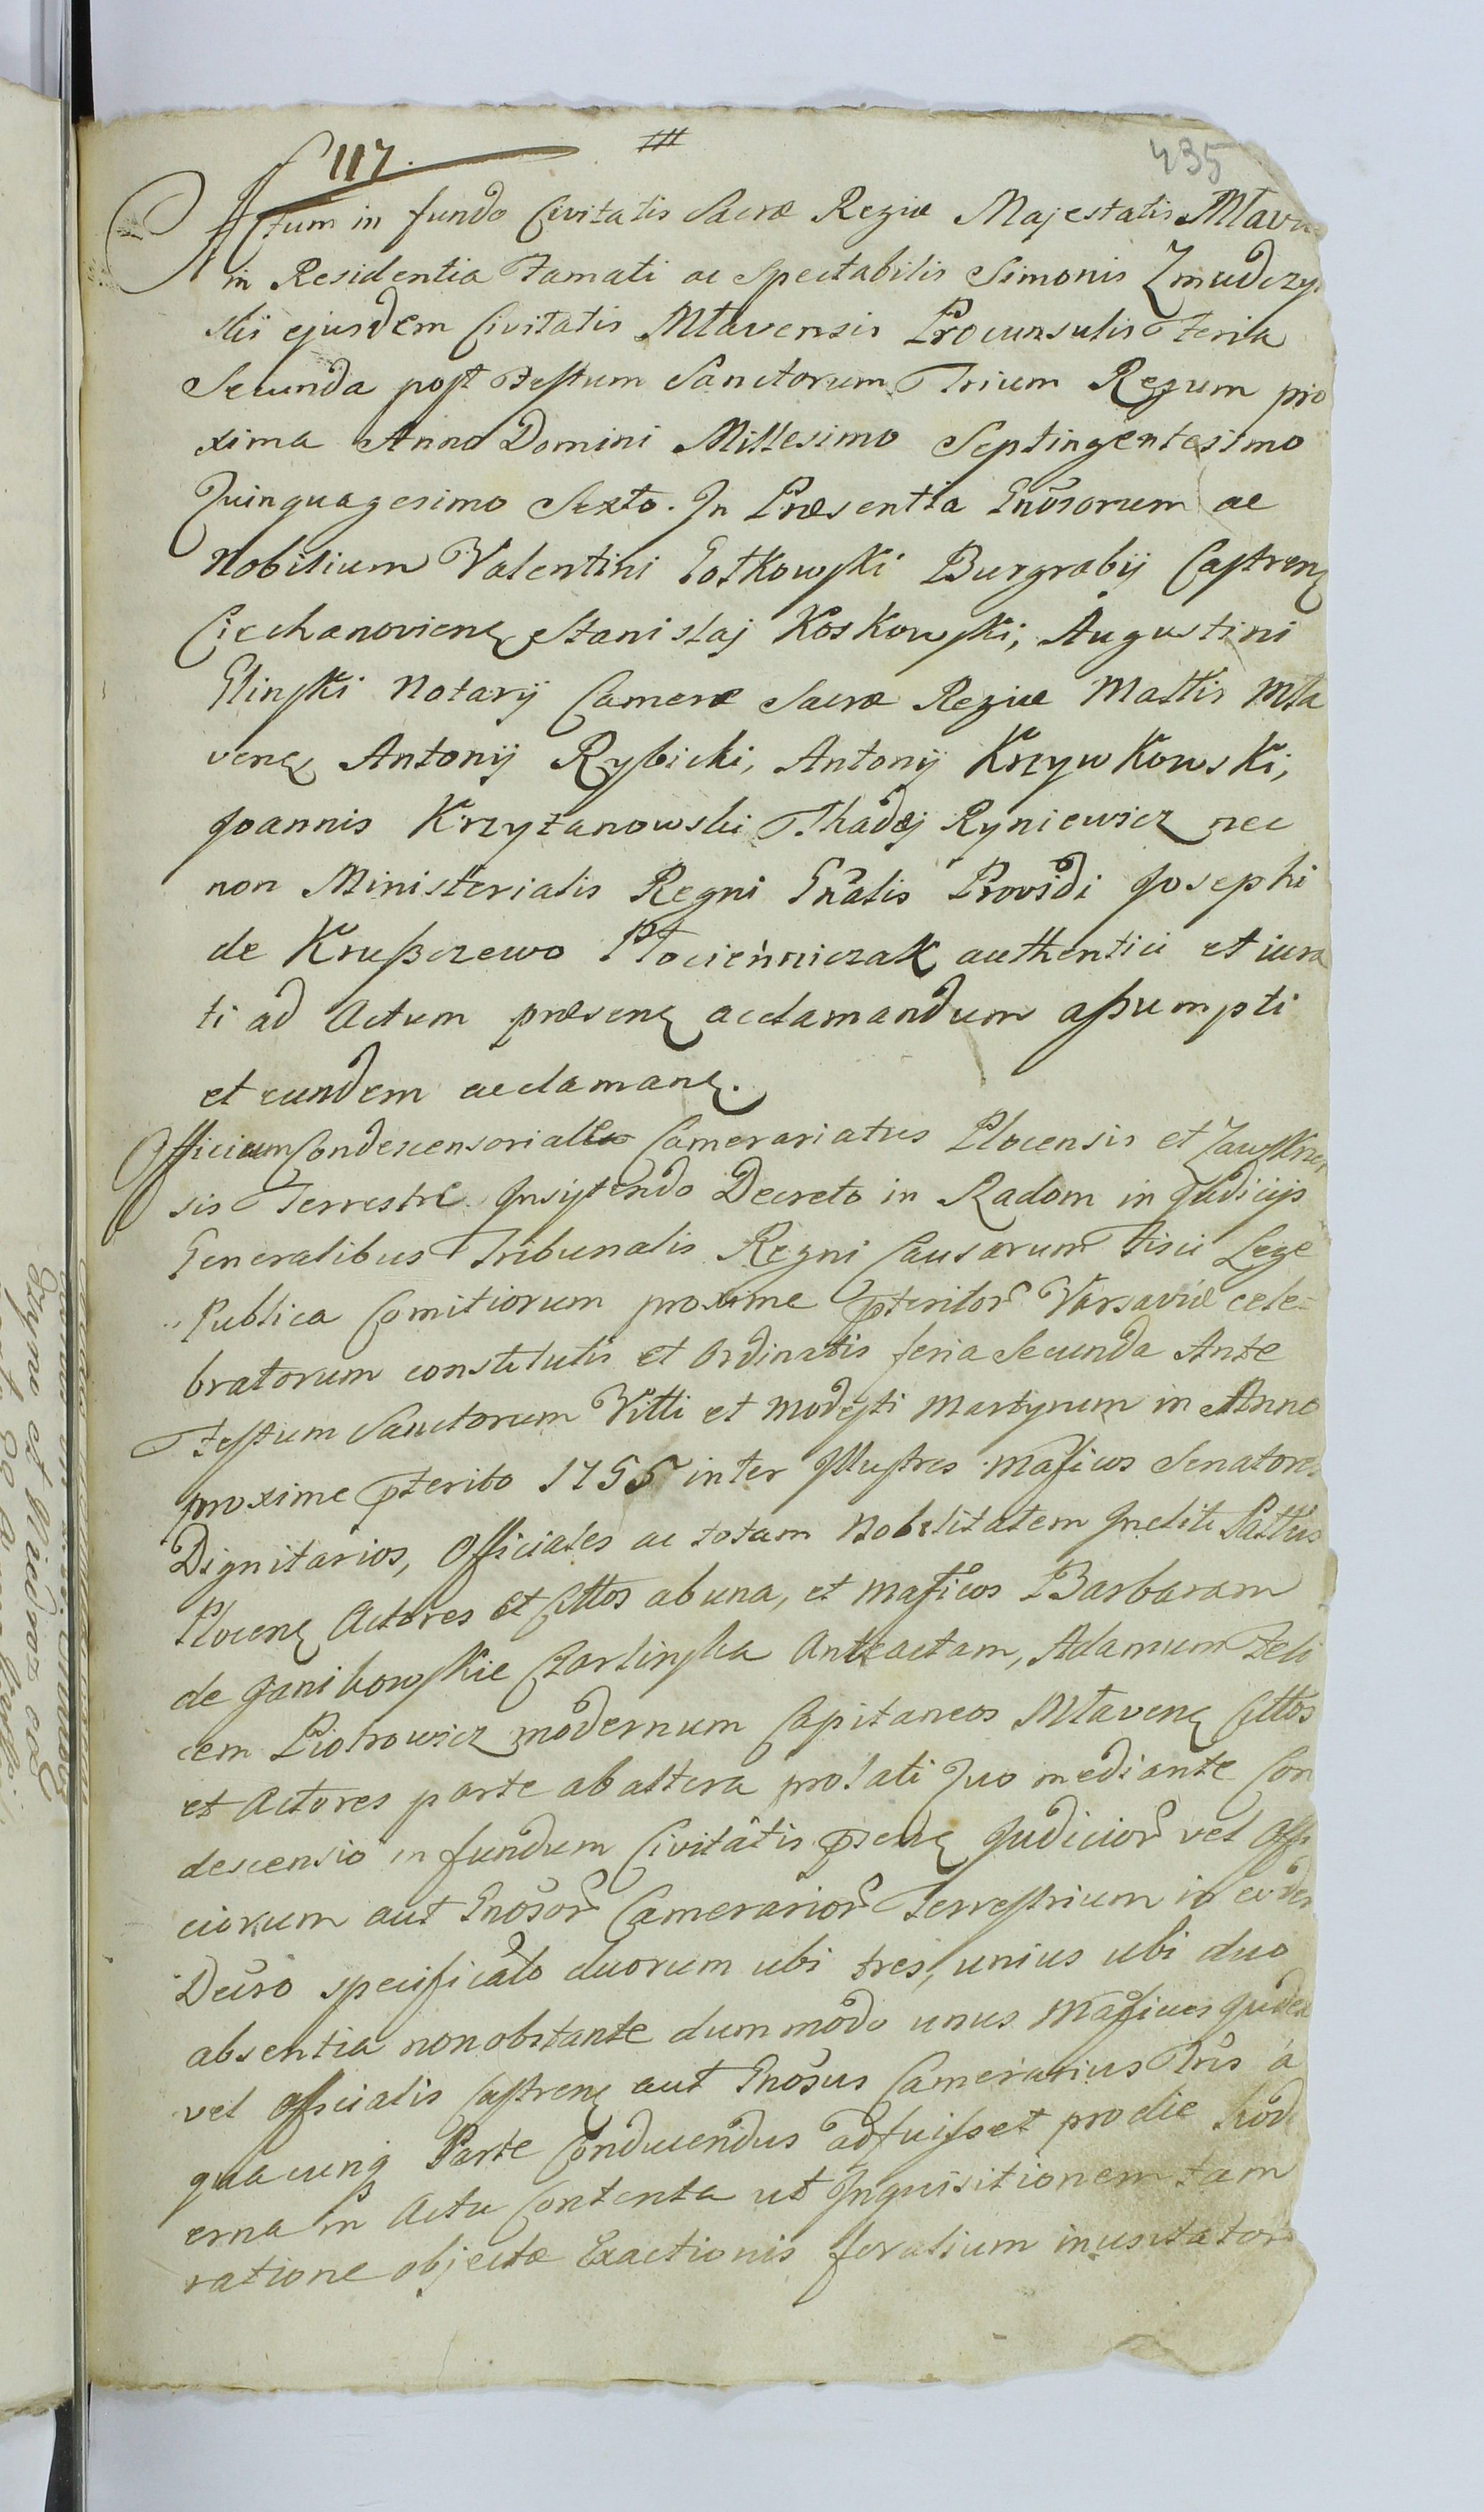 117. 435
Actum in fundo Civitatis Sacræ Regiæ Majestatis Mlavæ
in Residentia Famati ac Spectabilis Simonis Zmudczy
skii ejusdem Civitatis Mlavensis Proconsulis Feria
Secunda post Festum Sanctorum Trium Regum pro
xima Anno Domini Millesimo Septingentesimo
Quinquagesimo Sexto. In Præsentia Gnôsorum ac
Nobilium Valentini Gotkowski Burgrabij Castrenȝ
Ciechanovienȝ Stanislaj Koskowski, Augustini
Glinski Notarij Cameræ Sacræ Regiæ Mattis Mla
venȝ Antonij Rybicki, Antonij Krzywkowski,
Joannis Krzyżanowski Thadęj Ryniewicz nec
non Ministerialis Regni Gnâlis Providi Josephi
de Krußczewo Płocienniczak authentici et iura
ti ad Actum præsenȝ acclamandum aßumpti
et eundem acclamanȝ.
Officium Condescensoriale Camerariatus Plocensis et Zawskrzen
sis Terrestre Insistendo Decreto in Radom in Judicijs
Generalibus Tribunalis Regni Causarum Fisci Lege
Publica Comitiorum proxime pteritor Varsaviæ cele=
bratorum constitutis et Ordinatis feria Secunda Ante
Festum Sanctorum Vitti et Modesti Martyrum in Anno
proxime pterito 1755 inter Illustres Mâficos Senatores
Dignitarios, Officiales ac totam Nobilitatem Incliti Pattus
Plocenȝ Actores et Cittos ab una, et Mâficos Barbaram
de Janikowskie Czarlinska Anteactam, Adamum Feli
cem Piotrowicz modernum Capitaneos Mlavenȝ Cittos
et Actores parte ab altera prolati Quo mediante Con
descensio in fundum Civitatis psenȝ Judicior vel Offi
ciorum aut Gnôsor Camerarior Terrestrium in eodem
Decro specificato duorum ubi tres, unius ubi duo
absentia non obstante dummodo unus Mâficus Judex
vel Officialis Castrenȝ aut Gnôsus Camerarius Tris a
quacunq Parte Conducendus adfuisset pro die hodi
erna in Actu Contenta ut Inquisitionem tam
ratione objectæ Exactionis foralium inusitator